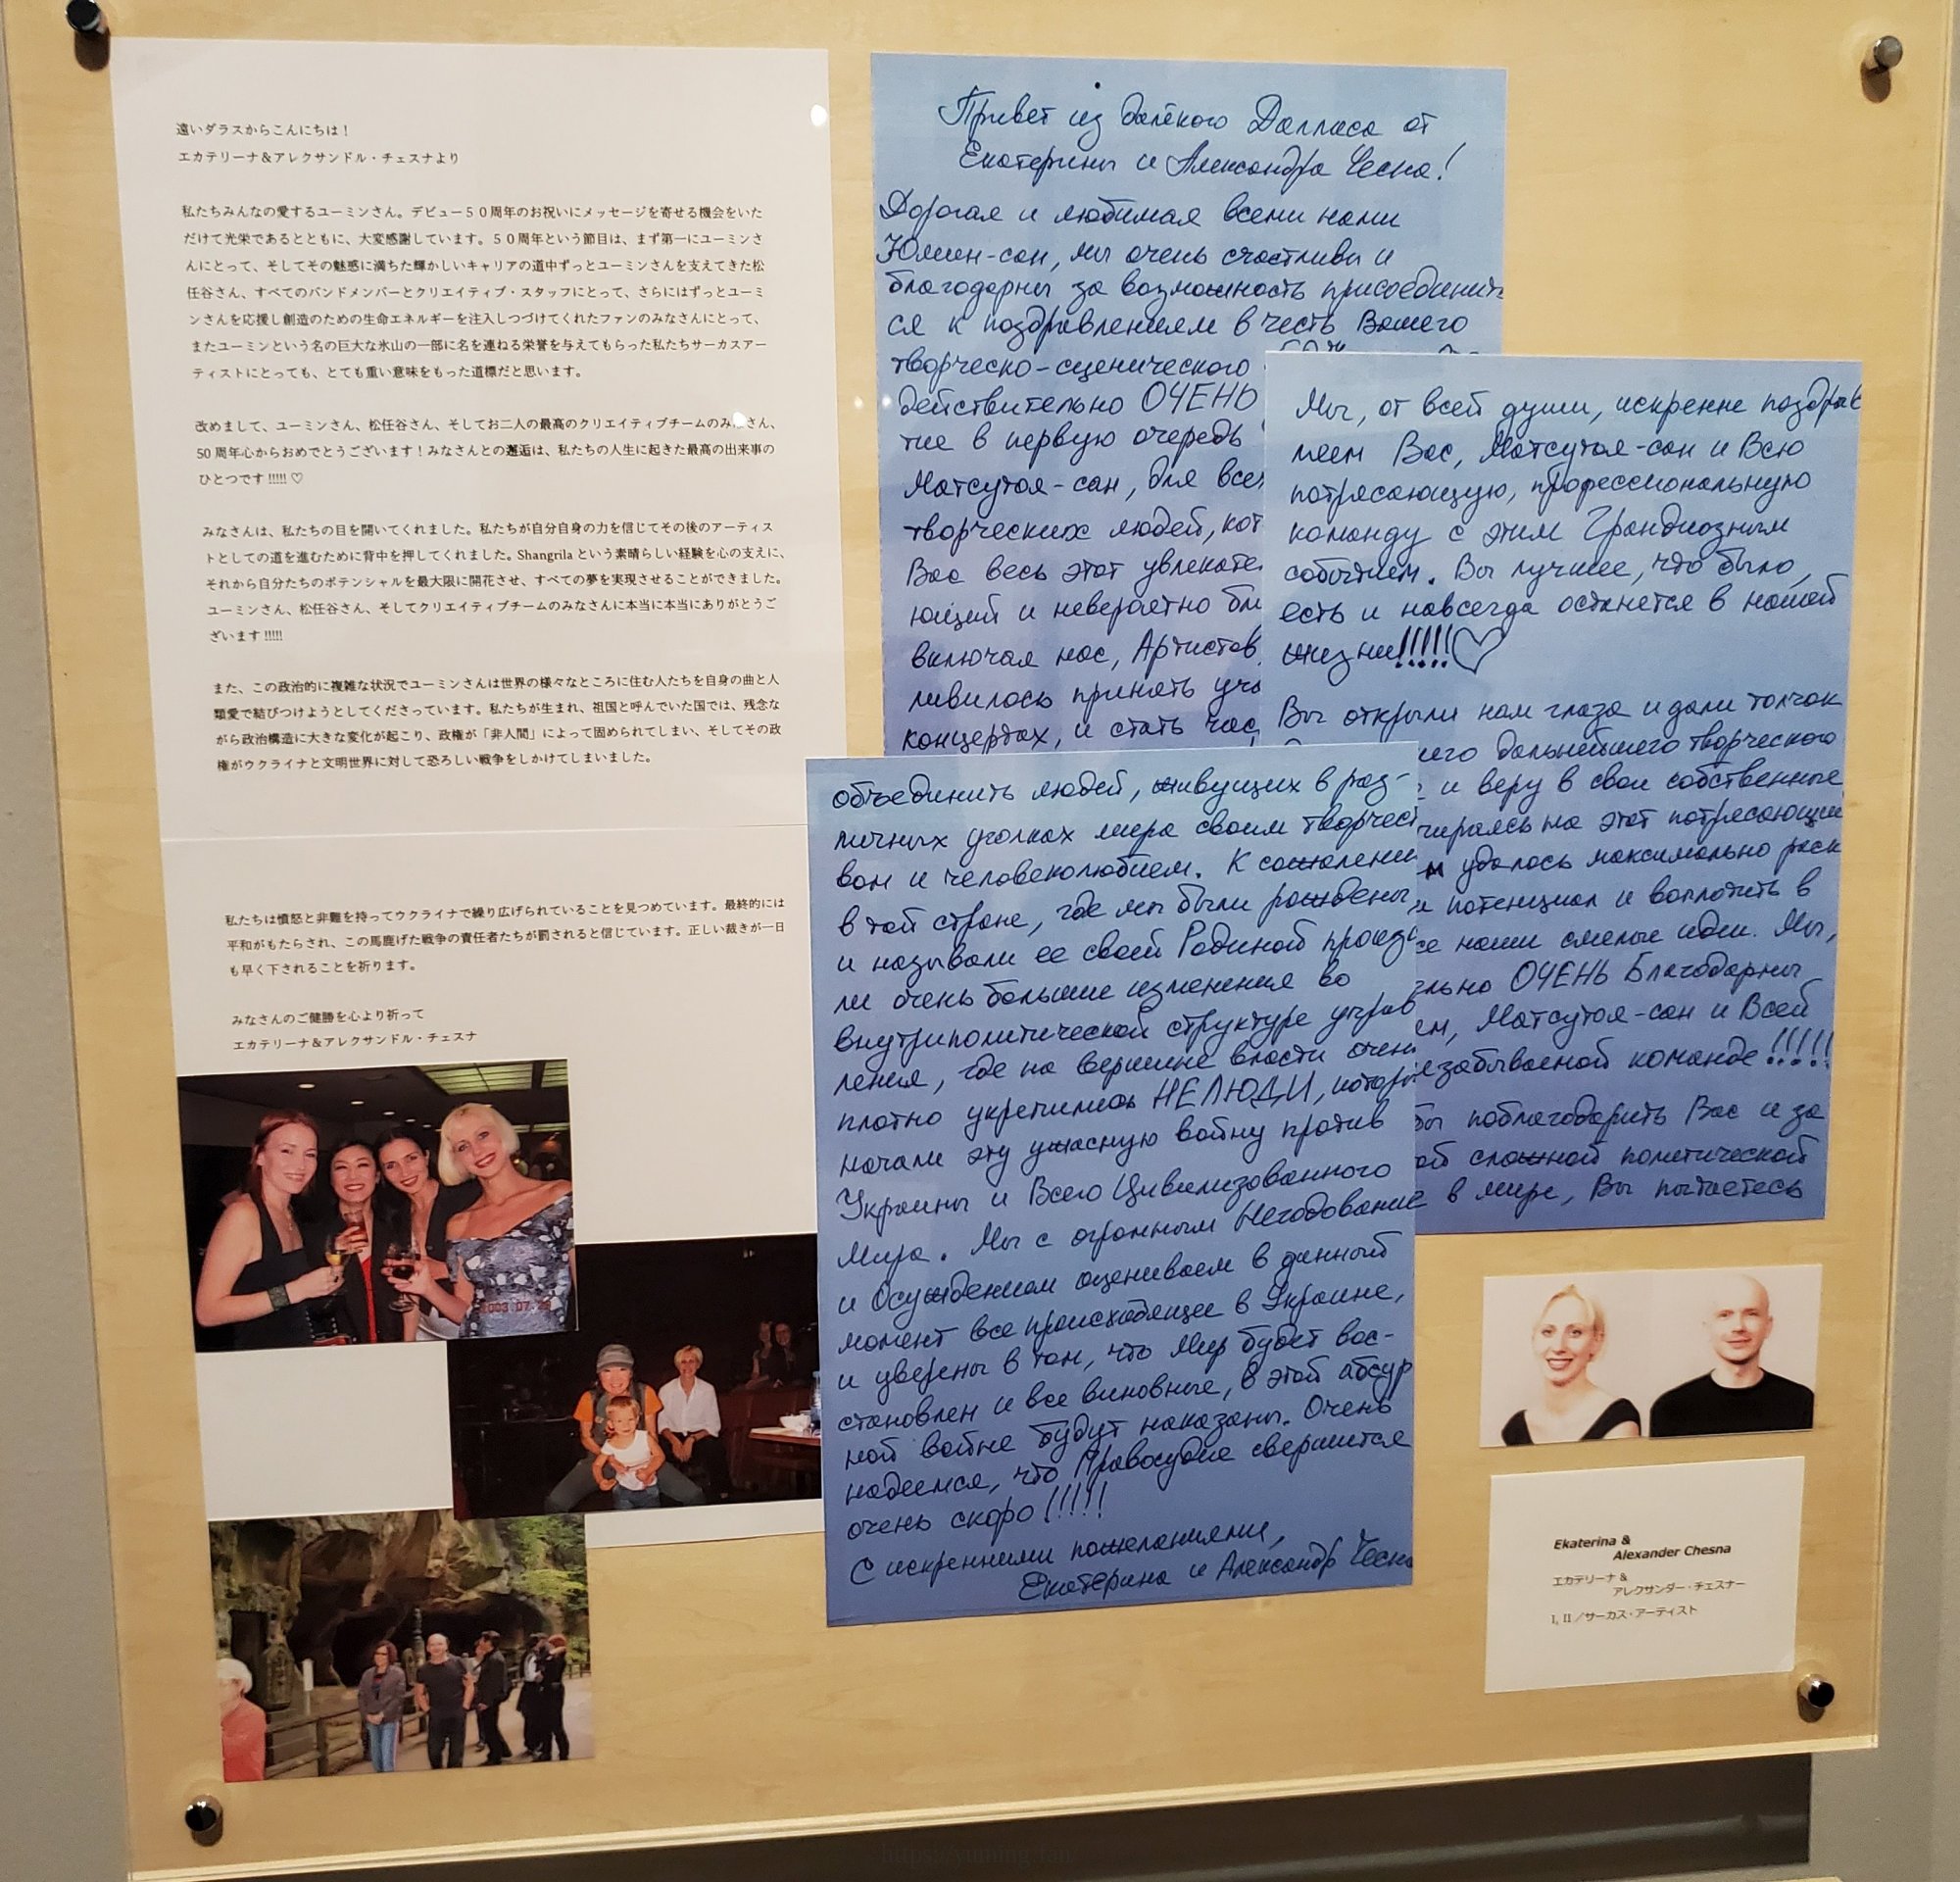 遠いダラスからこんにちは！
エカテリーナ＆アレクサンドル・チェスナより
私たちみんなの愛するユーミンさん。デビュー５０周年のお祝いにメッセージを寄せる機会をいた
だけて光栄であるとともに、大変感謝しています。５０周年という節目は、まず第一にユーミンさ
んにとって、そしてその魅惑に満ちた輝かしいキャリアの道中ずっとユーミンさんを支えてきた松
任谷さん、すべてのバンドメンバーとクリエイティブ・スタッフにとって、さらにはずっとユーミ
ンさんを応援し創造のための生命エネルギーを注入しつづけてくれたファンのみなさんにとって、
またユーミンという名の巨大な氷山の一部に名を連ねる栄誉を与えてもらった私たちサーカスアー
ティストにとっても、とても重い意味をもった道標だと思います。
改めまして、ユーミンさん、松任谷さん、そしてお二人の最高のクリエイティブチームのみ さん、
50 周年心からおめでとうございます！みなさんとの邂逅は、私たちの人生に起きた最高の出来事の
ひとつです !!!!! ♡
みなさんは、私たちの目を開いてくれました。私たちが自分自身の力を信じてその後のアーティス
トとしての道を進むために背中を押してくれました。Shangrila という素晴らしい経験を心の支えに、
それから自分たちのポテンシャルを最大限に開花させ、すべての夢を実現させることができました。
ユーミンさん、松任谷さん、そしてクリエイティブチームのみなさんに本当に本当にありがとうご
ざいます !!!!!
また、この政治的に複雑な状況でユーミンさんは世界の様々なところに住む人たちを自身の曲と人
類愛で結びつけようとしてくださっています。私たちが生まれ、祖国と呼んでいた国では、残念な
がら政治構造に大きな変化が起こり、政権が「非人間」によって固められてしまい、そしてその政
権がウクライナと文明世界に対して恐ろしい戦争をしかけてしまいました。
私たちは憤怒と非難を持ってウクライナで繰り広げられていることを見つめています。最終的には
平和がもたらされ、この馬鹿げた戦争の責任者たちが罰されると信じています。正しい裁きが一日
も早く下されることを祈ります。
みなさんのご健勝を心より祈って
エカテリーナ＆アレクサンドル・チェスナ
Привет из далёкого Далласа от
Екатерины и Александра Чесна!
Дорогая и любимая всеми нами
Юмин-сан, мы очень счастливы и
благодарны за возможность присоединить
ся к поздравлениям в честь Вашего
творческо-сценического
действительно ОЧЕНЬ
тие в первую очередь
Матсутоя-сан, для все
творческих людей, кот
Вас весь этот увлекате
ющий и невероятно бл
включая нас, Артистов,
ливилось принять уча
концертах, и стать час
Мы, от всей души, искренне поздрав
ляем Вас, Матсутоя-сан и Всю
потрясающую, профессиональную
команду с этим Грандиозным
событием. Вы лучшее, что было,
есть и навсегда останется в нашей
жизни!!!!!♡
Вы открыли нам глаза и дали толчок
его дальнейшего творческого
и веру в свои собственные
ираясь на этот потрясающий
удалось максимально раск
потенциал и воплотить в
се наши смелые идеи. Мы,
льно ОЧЕНЬ Благодарны
Матсутоя-сан и Всей
езабываемой команде!!!!!
бы поблагодарить Вас и за
ой сложной политической
в мире, Вы пытаетесь
объединить людей, живущих в раз-
личных уголках мира своим творчест
вом и человеколюбием. К сожалени
в той стране, где мы были рождены,
и называли ее своей Родиной произо
ли очень большие изменения во
внутриполитической структуре управ
ления, где на вершине власти очень
плотно укрепились НЕЛЮДИ, которые
начали эту ужасную войну против
Украины и Всего Цивилизованного
Мира. Мы с огромным Негодование
и Осуждением оцениваем в данный
момент все происходящее в Украине,
и уверены в том, что Мир будет вос-
становлен и все виновные, в этой абсур
ной войне будут наказаны. Очень
надеемся, что Правосудие свершится
очень скоро!!!!!
С искренними пожеланиями,
Екатерина и Александр Чесна
2003.07.
Ekaterina &
Alexander Chesna
エカテリーナ &
アレクサンダー・チェスナー
I, II／サーカス・アーティスト